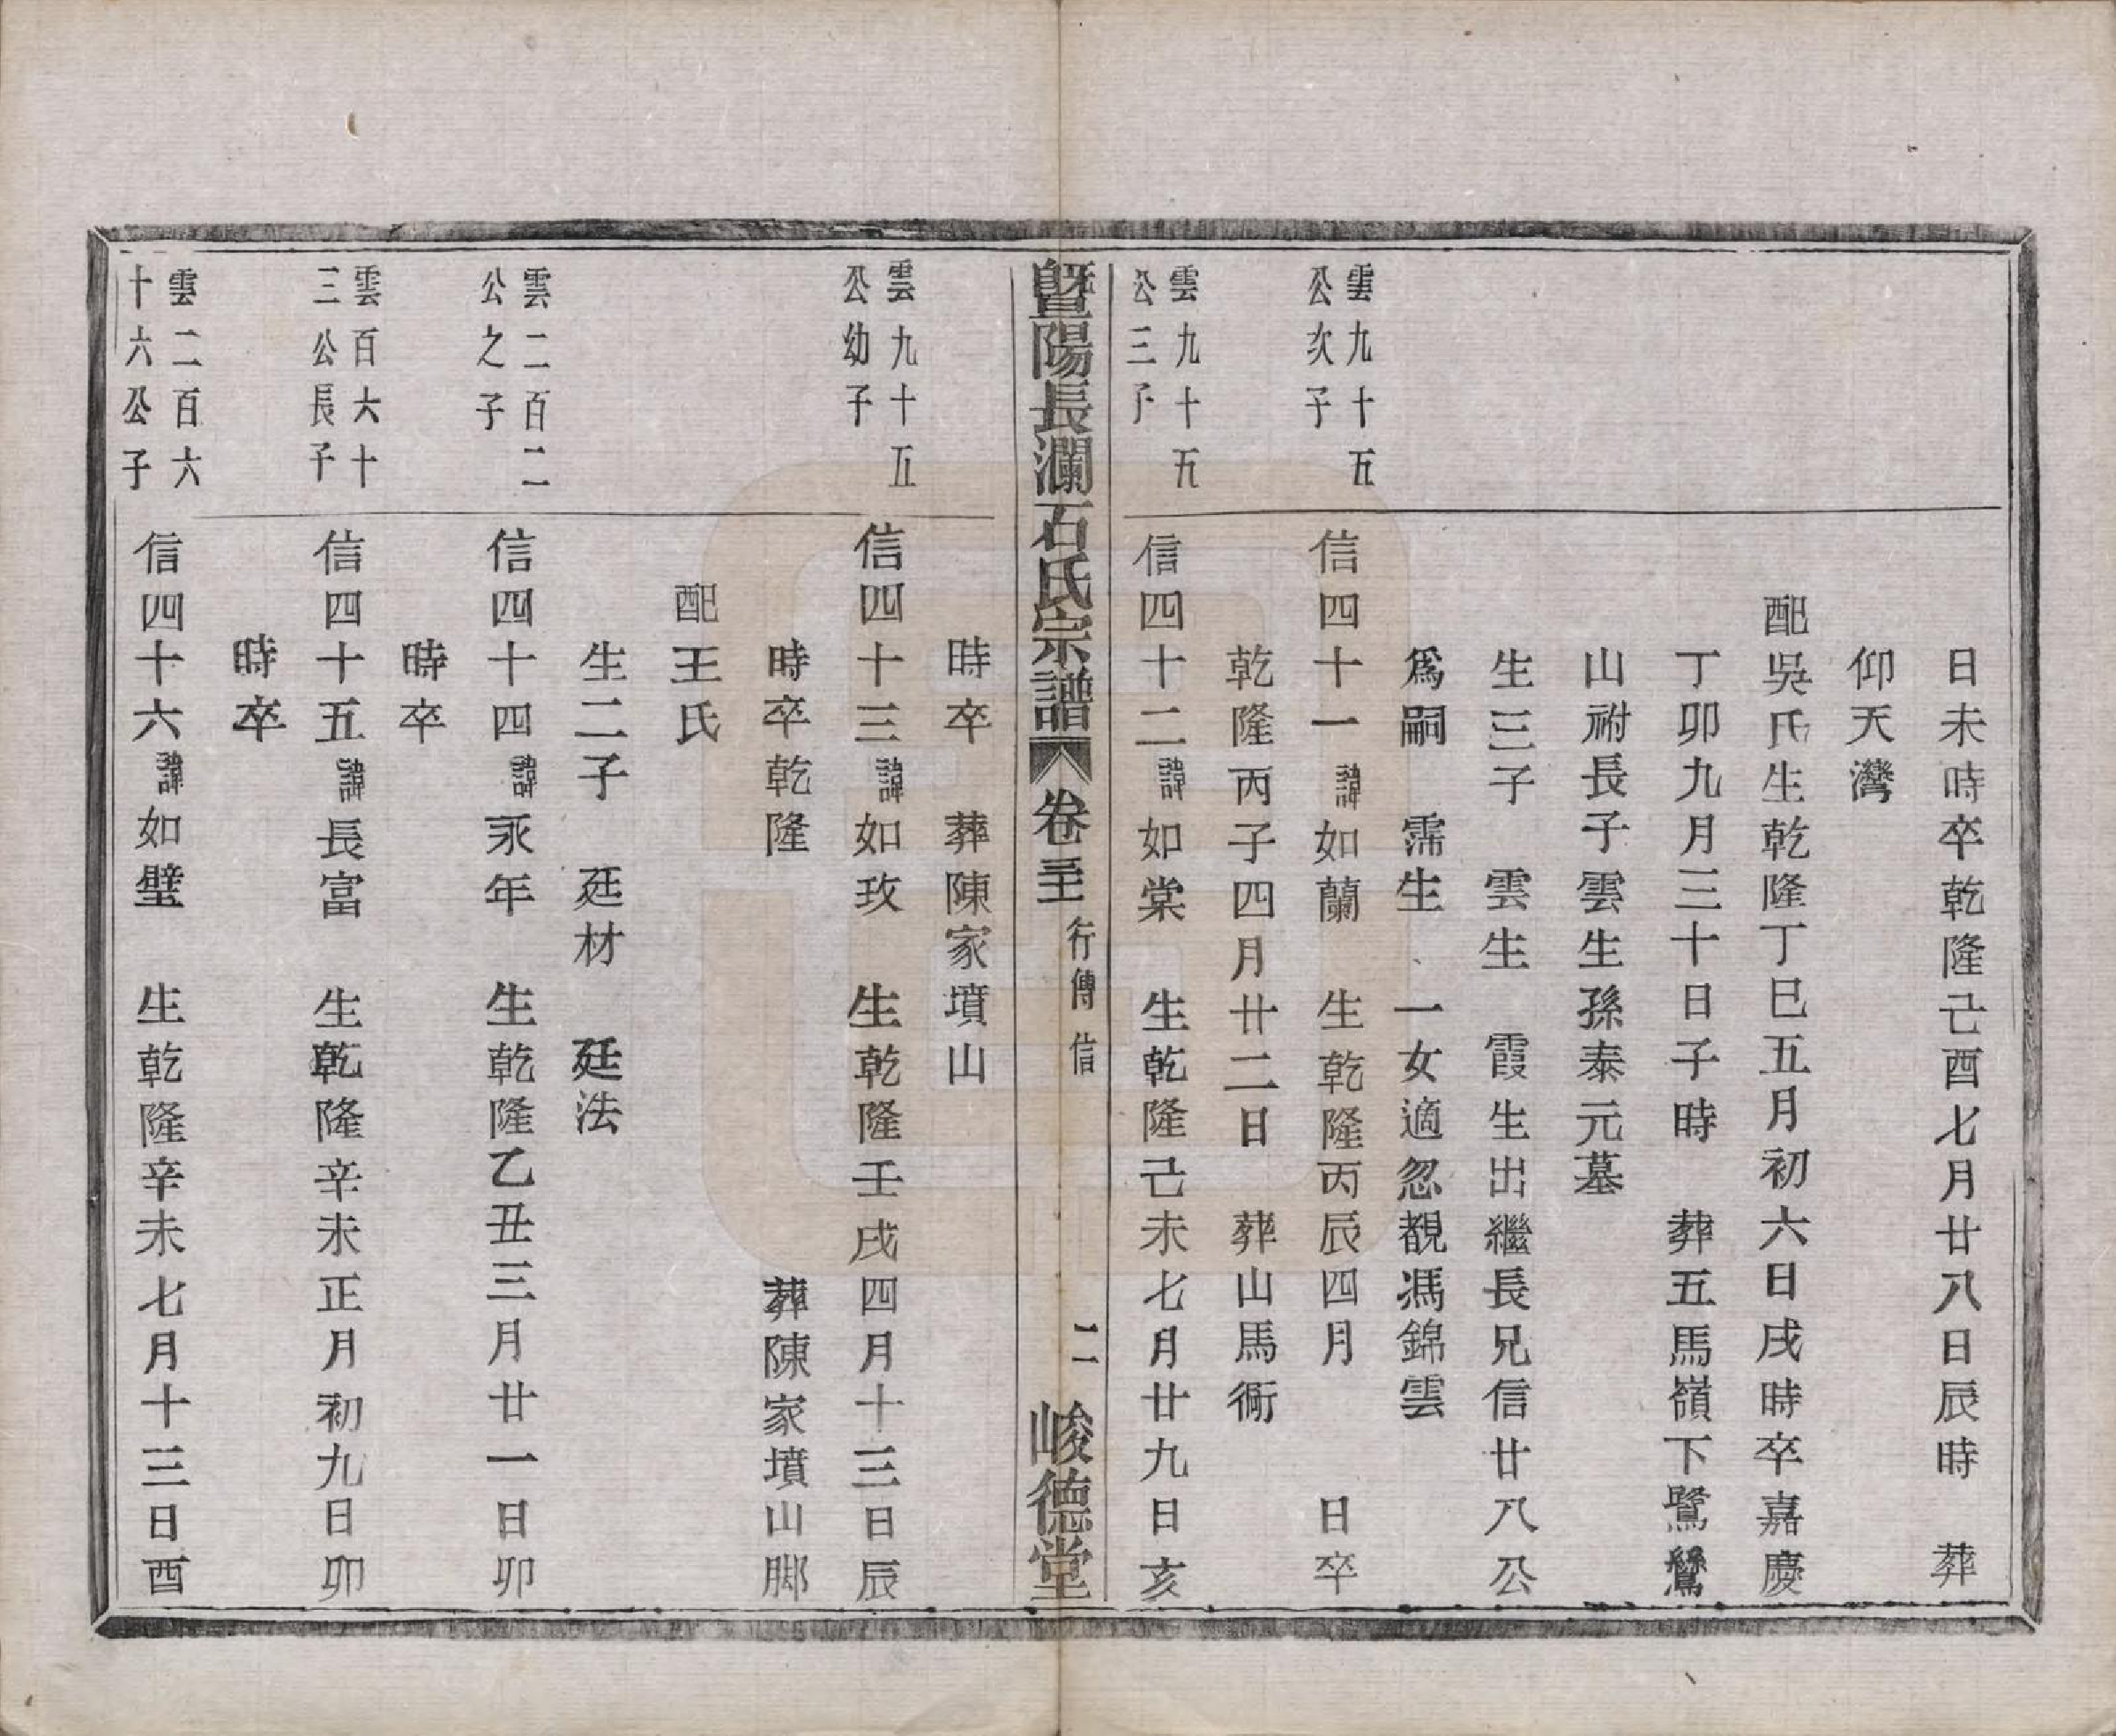 日未時卒乾隆己酉七月廿八日辰時　葬
仰天灣
配吳氏生乾隆丁巳五月初六日戌時卒嘉慶
丁卯九月三十日子時　葬五馬嶺下鷺鷥
山祔長子雲生孫泰元墓
生三子　雲生　霞生出繼長兄信廿八公
爲嗣　霈生　一女適忽覩馮錦雲
雲九十五
公次子
信四十一諱如蘭　生乾隆丙辰四月　日卒
乾隆丙子四月廿二日　葬山馬衕
雲九十五
公三子
信四十二諱如棠　生乾隆己未七月廿九日亥
暨陽長瀾石氏宗譜　卷三十一　行傳　信　二　峻德堂
時卒　葬陳家墳山
雲九十五
公幼子
信四十三諱如玫　生乾隆壬戌四月十三日辰
時卒乾隆　葬陳家墳山脚
配王氏
生二子　廷材　廷法
雲二百二
公之子
信四十四諱永年　生乾隆乙丑三月廿一日卯
時卒
雲百六十
三公長子
信四十五諱長富　生乾隆辛未正月初九日卯
時卒
雲二百六
十六公子
信四十六諱如璧　生乾隆辛未七月十三日酉